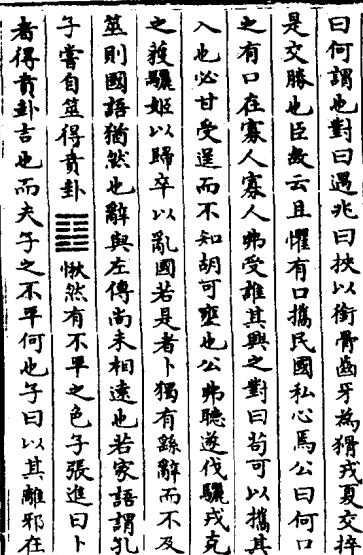 曰何謂也對曰遇兆曰挾以銜骨齒牙為猾戎夏交捽
是交勝也臣故云且懼有口攜民國移心焉公曰何口
之有口在寡人寡人弗受誰其興之對曰苟可以攜其
入也必甘受逞而不知胡可壅也公弗聽遂伐驪戎克
之獲驪姬以歸卒以亂國若是者卜獨有繇辭而不及
筮則國語猶然也辭與左傳尚未相遠也若家語謂孔
子嘗自筮得賁卦愀然有不平之色子張進曰卜
者得賁卦吉也而夫子之不平何也子曰以其離邪在